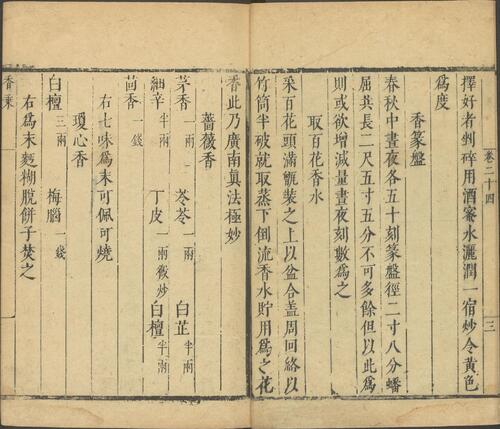 擇好者剉碎用酒蜜水灑潤一宿炒令黃色
爲度
香篆盤
春秋中晝夜各五十刻篆盤徑二寸八分蟠
屈共長二尺五寸五分不可多餘但以此爲
則或欲增減量晝夜刻數爲之
取百花香水
采百花頭滿甑裝之上以盆合蓋周回絡以
竹筒半破就取蒸下倒流香水貯用爲之花
卷二十四
三
香此乃廣南眞法極妙
薔薇香
茅香一兩 苓苓一兩 白芷半兩
細辛半兩 丁皮一兩微炒 白檀半兩
茴香一錢
右七味爲末可佩可燒
瓊心香
白檀三兩 梅腦一錢
右爲末麪糊脫餅子焚之
香乘